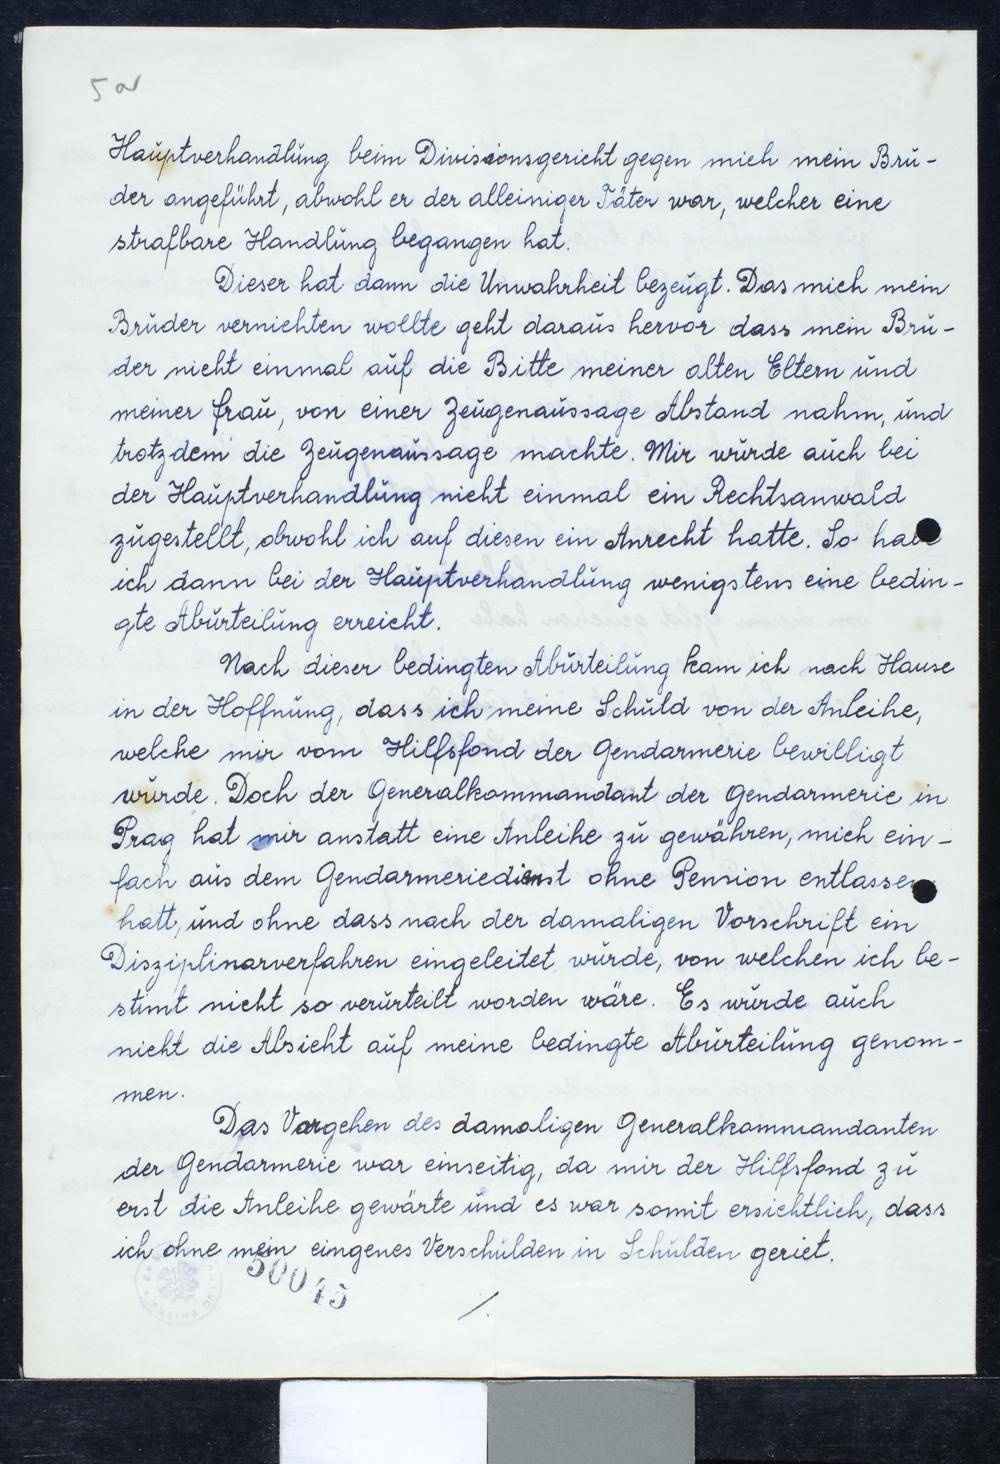 5a
Hauptverhandlung beim Divisionsgericht gegen mich mein Bru-
der angeführt, abwohl er der alleiniger Täter war, welcher eine
strafbare Handlung begangen hat.
Dieser hat dann die Unwahrheit bezeugt. Das mich mein
Bruder vernichten wollte geht daraus hervor dass mein Bru-
der nicht einmal auf die Bitte meiner alten Eltern und
meiner Frau, von einer Zeugenaussage Abstand nahm, und
trotzdem die Zeugenaussage machte. Mir wurde auch bei
der Hauptverhandlung nicht einmal ein Rechtsanwald
zugestellt, obwohl ich auf diesen ein Anrecht hatte. So habe
ich dann bei der Hauptverhandlung wenigstens eine bedin-
gte Aburteilung erreicht.
Nach dieser bedingten Aburteilung kam ich nach Hause
in der Hoffnung, dass ich meine Schuld von der Anleihe,
welche mir vom Hilfsfond der Gendarmerie bewilligt
wurde. Doch der Generalkommandant der Gendarmerie in
Prag hat mir anstatt eine Anleihe zu gewähren, mich ein-
fach aus dem Gendarmeriedienst ohne Pension entlassen
hatt, und ohne dass nach der damaligen Vorschrift ein
Disziplinarverfahren eingeleitet wurde, von welchen ich be-
stimt nicht so verurteilt worden wäre. Es wurde auch
nicht die Absicht auf meine bedingte Aburteilung genom-
men.
Das Vorgehen des damaligen Generalkommandanten
der Gendarmerie war einseitig, da mir der Hilfsfond zu
erst die Anleihe gewärte und es war somit ersichtlich, dass
ich ohne mein eingenes Verschulden in Schulden geriet.
50045
/.